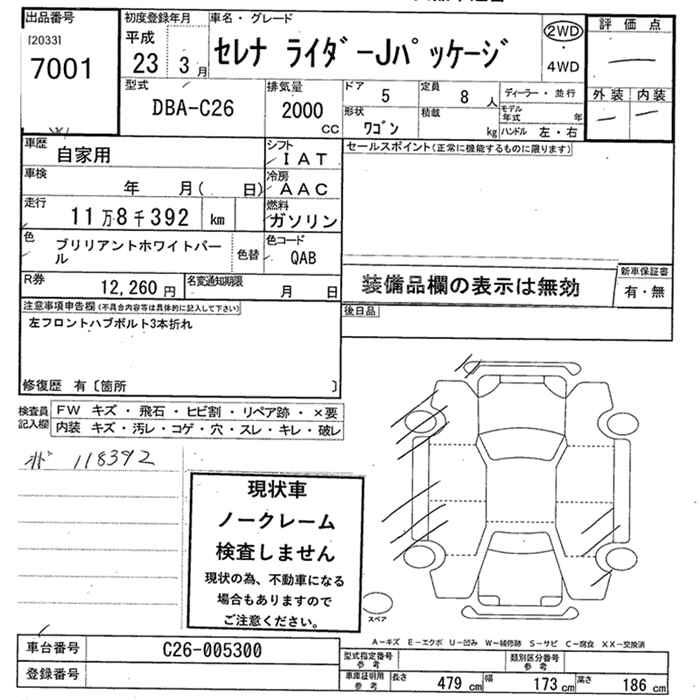 出品番号
[2033]
7001
初度登録年月
平成
23 3 月
車名・グレード
セレナ ライダーJパッケージ
2WD
・
4WD
評価点
外装 内装
型式
DBA-C26
排気量
2000
CC
ドア
5
定員
8 人
ディーラー・並行
形状
ワゴン
積載
kg
モデル年式 年
ハンドル 左・右
車歴
自家用
シフト
IAT
セールスポイント(正常に機能するものに限ります)
車検
年 月( 日)
冷房
AAC
走行
11万8千392 km
燃料
ガソリン
色
ブリリアントホワイトパール
色替
色コード
QAB
R券
12,260 円
名変通知期限
月 日
装備品欄の表示は無効
新車保証書
有・無
注意事項申告欄(不具合内容等は具体的に記入して下さい)
左フロントハブボルト3本折れ
後日品
修復歴 有〔箇所 〕
検査員記入欄
FW キズ・飛石・ヒビ割・リペア跡・×要
内装 キズ・汚レ・コゲ・穴・スレ・キレ・破レ
118392
現状車
ノークレーム
検査しません
現状の為、不動車になる
場合もありますので
ご注意ください。
スペア
A−キズ E−エクボ U−凹み W−補修跡 S−サビ C−腐食 XX−交換済
車台番号
C26-005300
登録番号
型式指定番号
参考
類別区分番号
参考
車庫証明用
参考
長さ 479 cm
幅 173 cm
高さ 186 cm